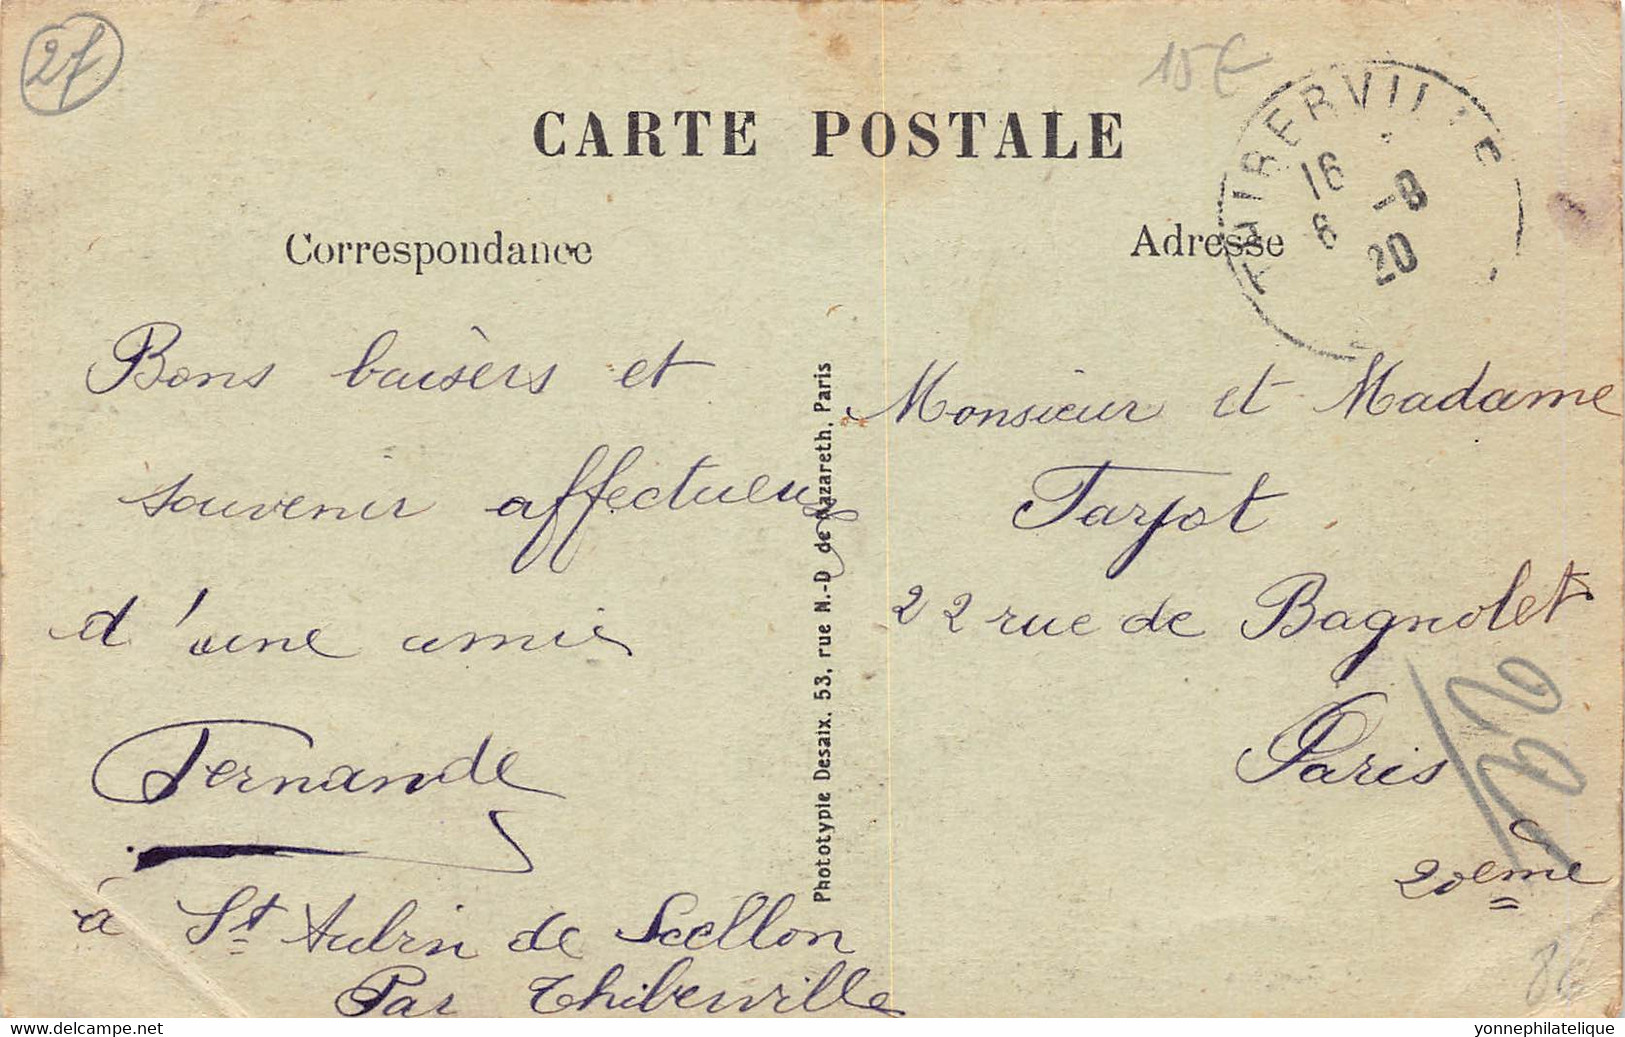 27
15€
CARTE POSTALE
THIBERVILLE
16 -8
6 20
Correspondance
Adresse
Bons baisers et
souvenir affectueux
d'une amie
Fernande
à St Aubin de Scellon
Par Thiberville
Phototypie Desaix, 53, rue N.-D de Nazareth, Paris
Monsieur et Madame
Tarjot
22 rue de Bagnolet
Paris
20ème
delcampe.net
yonnephilatelique